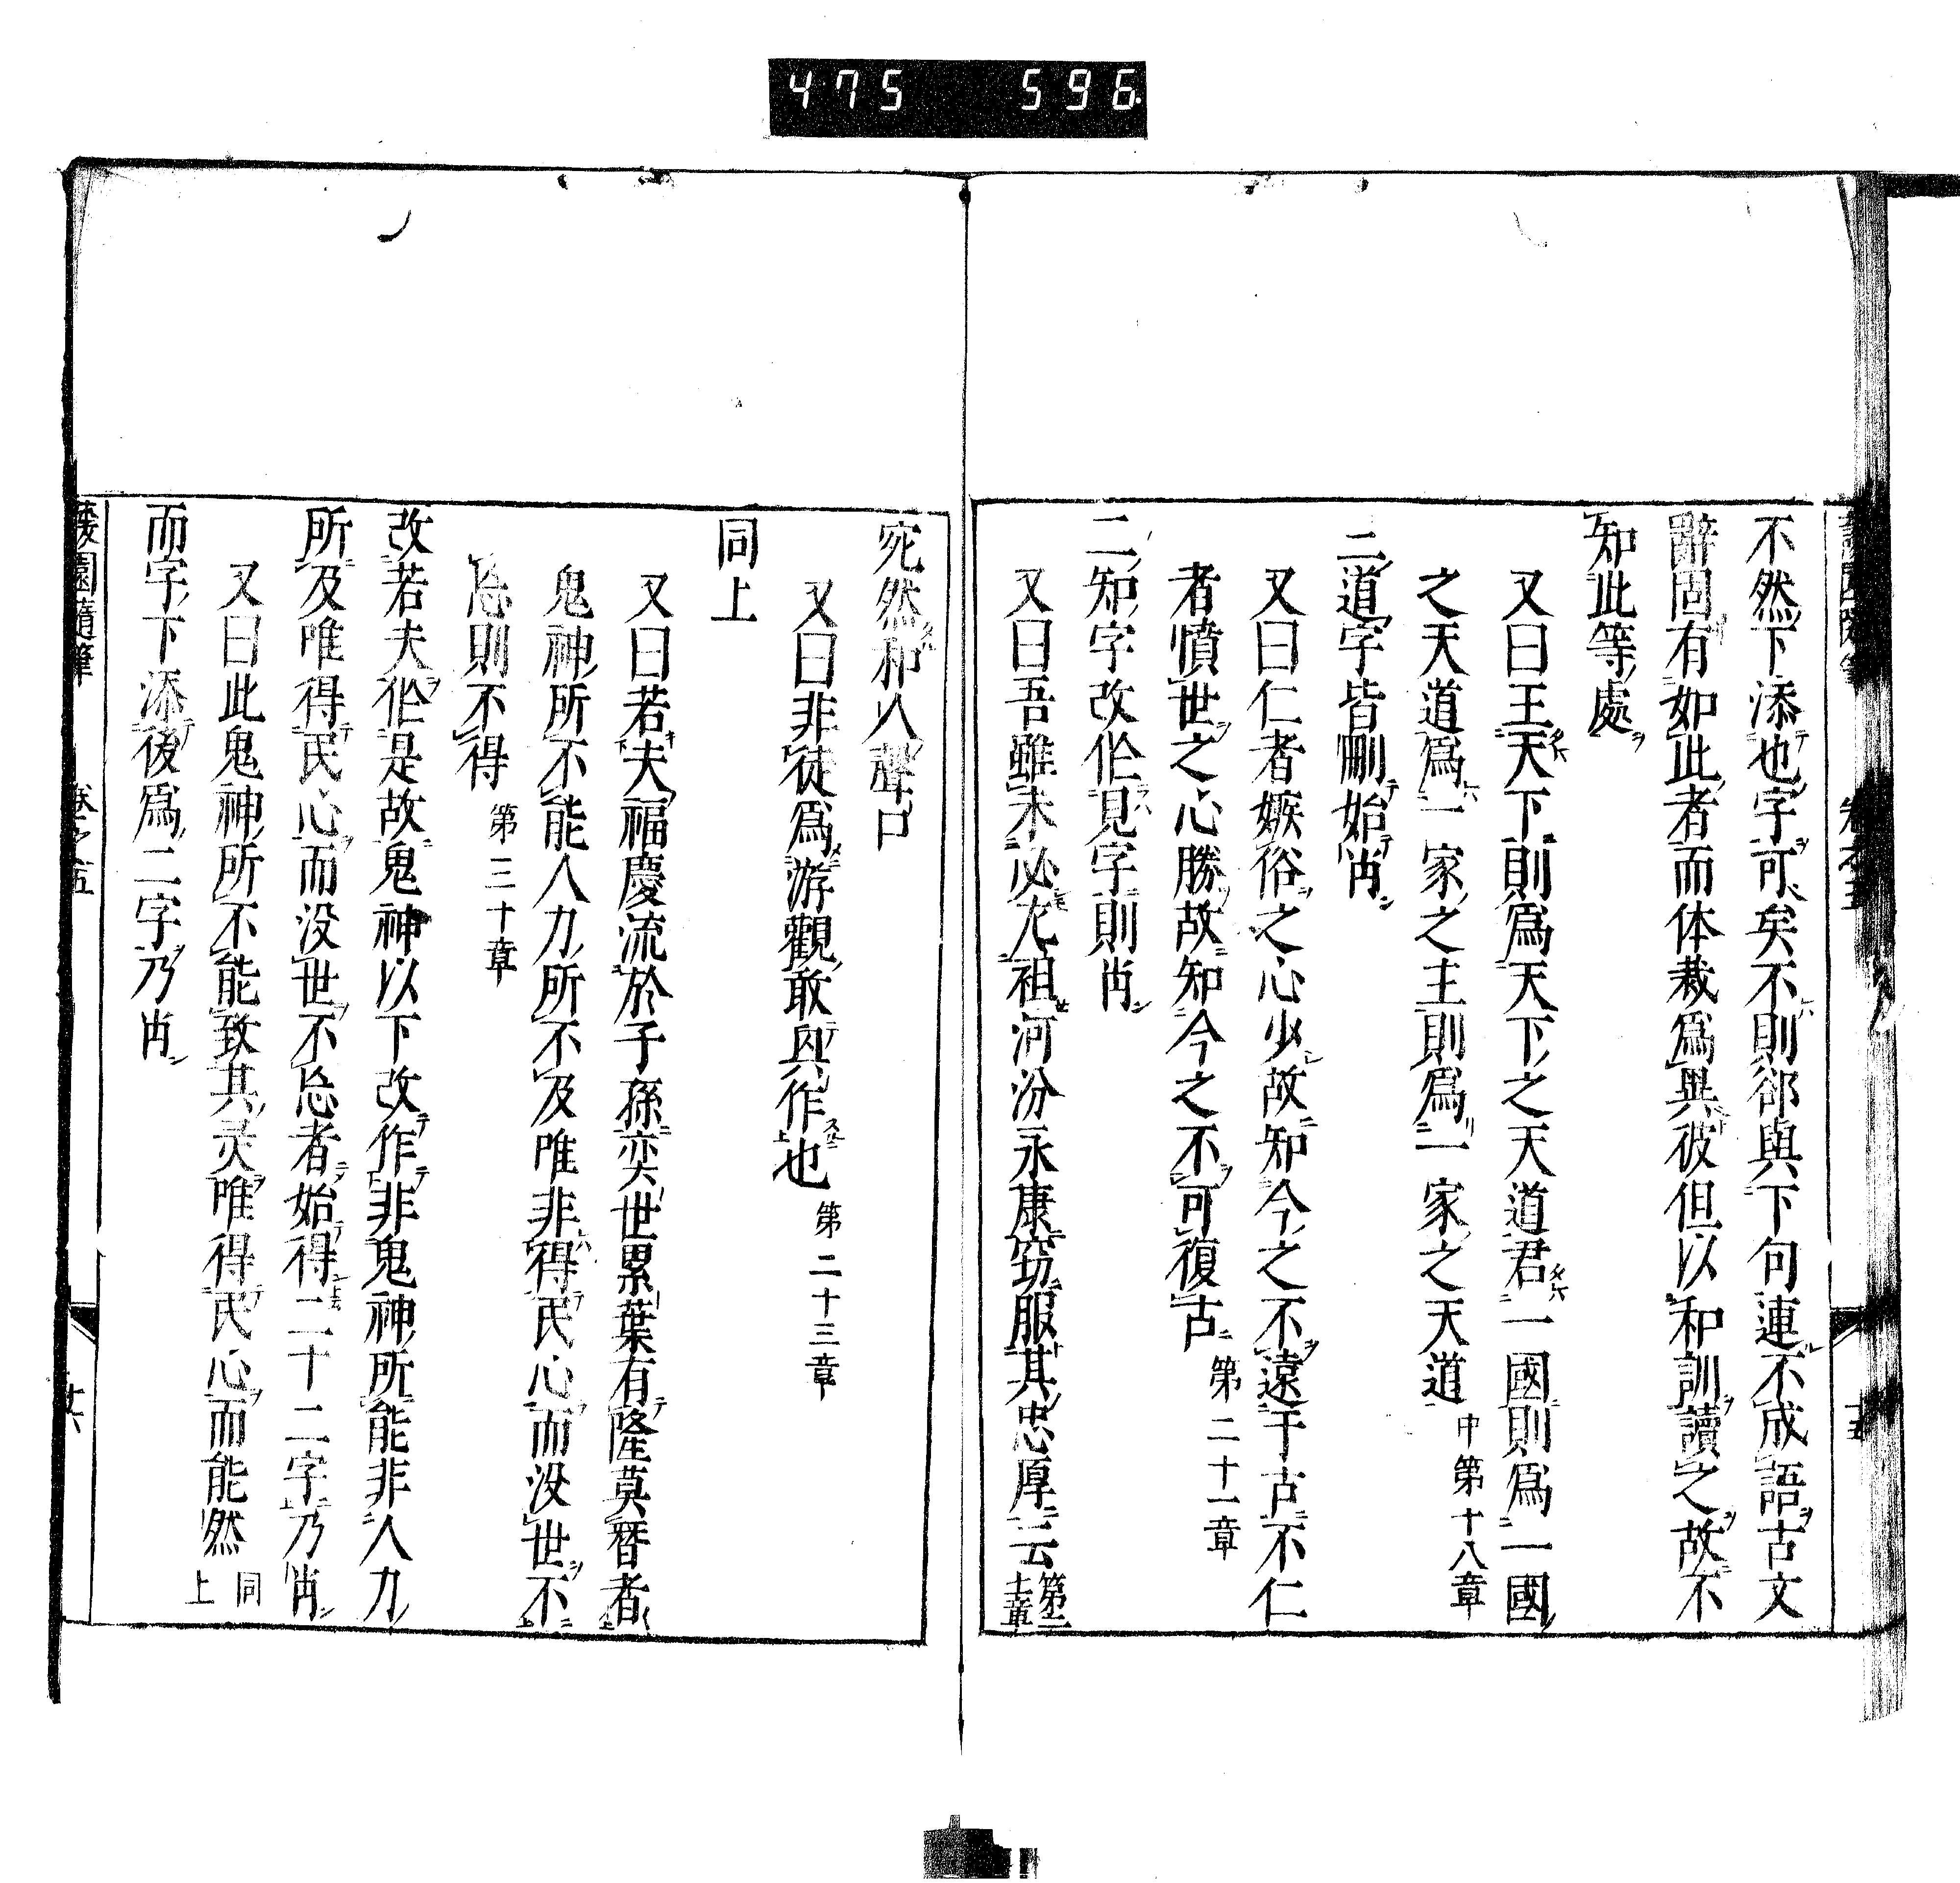 475 596
不然下添也字可矣不則郤與下句連不成語古文
辭固有如此者而体裁爲異彼但以和訓讀之故不
知此等處
又曰王天下則爲天下之天道君一國則爲一國
之天道爲一家之主則爲一家之天道中第十八章
二道字皆刪始肖
又曰仁者嫉俗之心少故知今之不遠于古不仁
者憤世之心勝故知今之不可復古第二十一章
二知字改作見字則肖
又曰吾雖未必尤祖河汾永康窃服其忠厚云
宛然和人聲口
又曰非徒爲游觀敢與作也第二十三章
同上
又曰若夫福慶流於子孫奕世累葉有隆莫暦者
鬼神所不能人力所不及唯非得民心而没世不
忘則不得第三十章
改若夫作是故鬼神以下改作非鬼神所能非人力
所及唯得民心而没世不忘者始得二十二字乃肖
又曰此鬼神所不能致其灵唯得民心而能然同上
而字下添後爲二字乃肖
園隨筆 卷之五 廿六